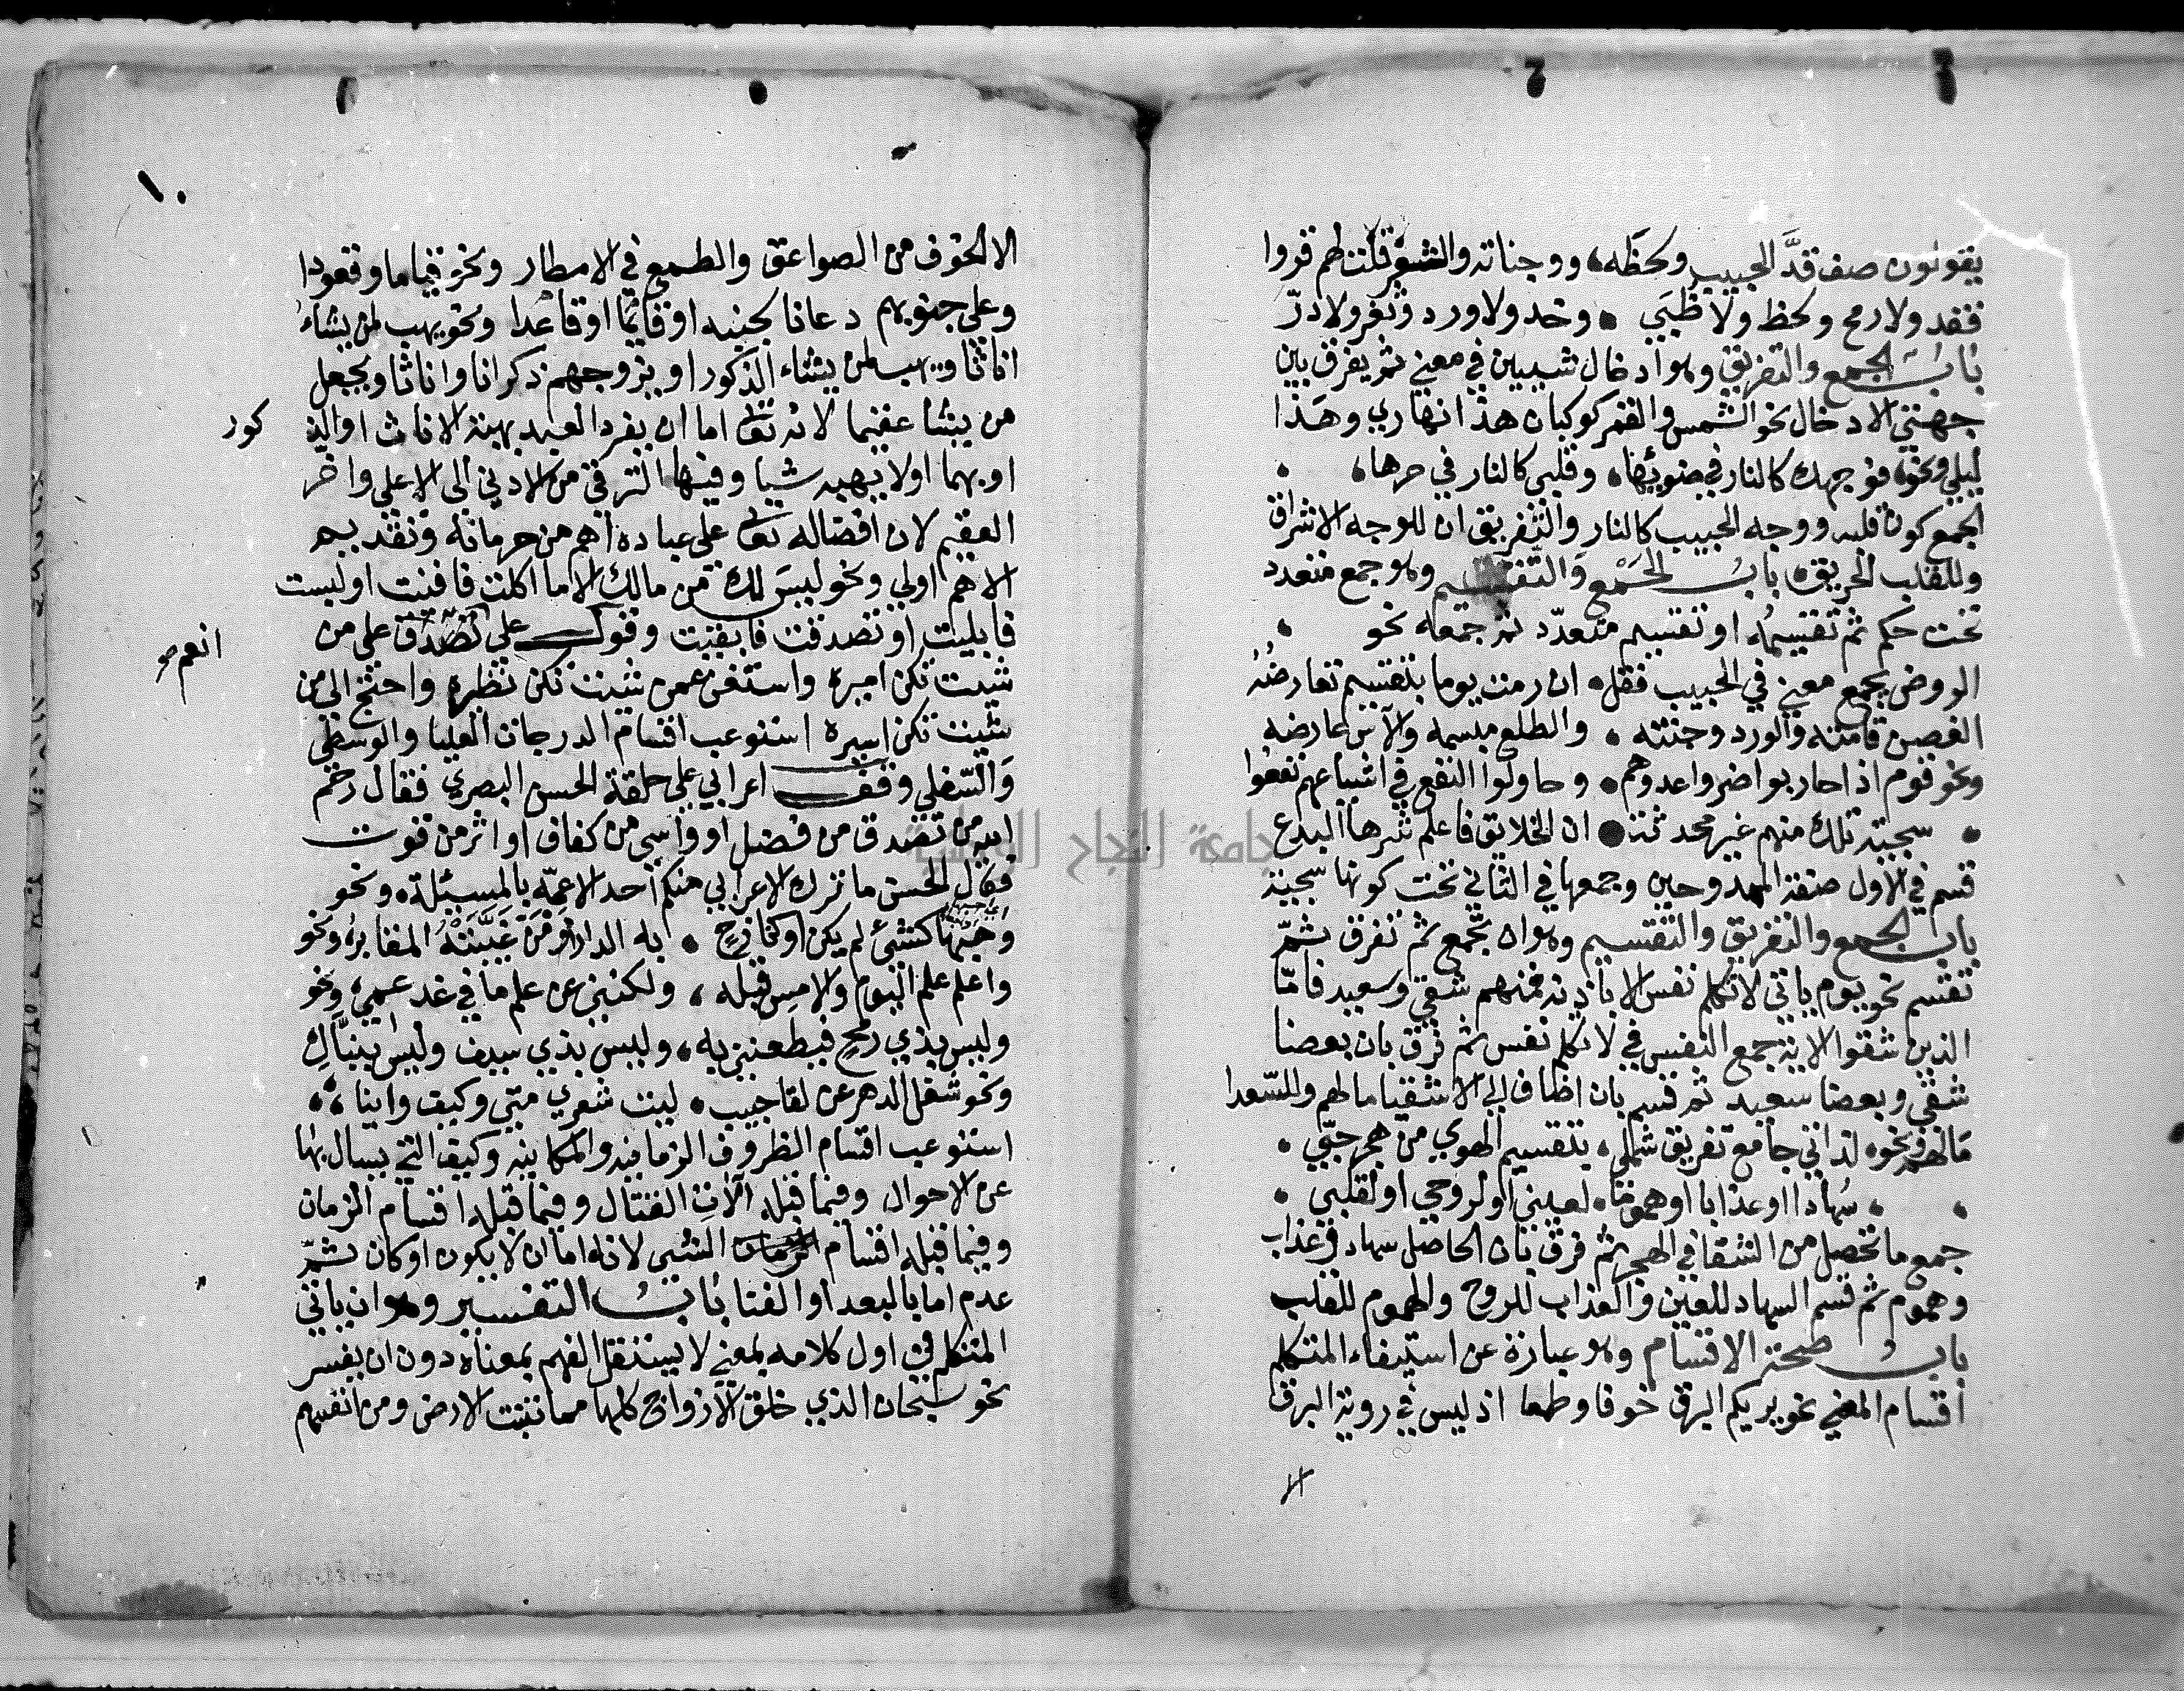 يقولون صف قدَّ الحبيب ولحظه ووجناته والثغر قلت لهم قروا
فقد ولا رمح ولحظ ولا ظبي وخد ولا ورد وثغر ولا درّ
باب الجمع والتفريق وهو ادخال شيبين في معني ثم يفرق بين
جهتي الادخال نحو الشمس والقمر كوكبان هذا نهاري وهذا
ليلي ونحو فوجهك كالنار في ضوئها وقلبي كالنار في حرها
الجمع كون قلبه ووجه الحبيب كالنار والتفريق ان للوجه الاشراق
وللقلب الحريق باب الجمع والتقسيم وهو جمع متعدد
تحت حكم ثم تقسيمه او تقسيم متعدّد ثم جمعه نحو
الروض يجمع معني في الحبيب فقل ان رمت يوما بتقسيم تعارضه
الغصن قامته والورد وجنته والطلع مبسمه والآس عارضه
ونحو قوم اذا حاربوا ضروا عدوهم وحاولوا النفع في اشياعهم نفعوا
سجية تلك منهم غير محدثة ان الخلايق فاعلم شرها البدع
قسم في الاول صفة الممدوحين وجمعها في الثاني تحت كونها سجية
باب الجمع والتفريق والتقسيم وهو ان تجمع ثم تفرق ثمّ
تقسم نحو يوم ياتي لا تكلم نفس الا باذنه فمنهم شقي وسعيد فامّا
الذين شقوا الاية جمع النفس في لا تكلم نفس ثم فرق بان بعضا
شقي وبعضا سعيد ثم قسم بان اضاف الي الاشقيا ما لهم وللسّعدا
مالهم ونحو لذاتي جامع تفريق شملي بتقسيم الهوي من هجر حبّي
سُهادا او عذابا او هموما لعيني او لروحي او لقلبي
جمع ما تحصل من الشقا في الهجر ثم فرق بان الحاصل سهاد وعذاب
وهموم ثم قسم السهاد للعين والعذاب للروح والهموم للقلب
باب صحة الاقسام وهو عبارة عن استيفاء المتكلم
اقسام المعني نحو يريكم البرق خوفا وطمعا اذ ليس في روية البرق
الا
١٠
الا الخوف من الصواعق والطمع في الامطار ونحو قياما وقعودا
وعلي جنوبهم دعانا لجنبه او قائما او قاعدا ونحو يهب لمن يشاء
اناثا ويهب لمن يشاء الذكور او يزوجهم ذكرانا واناثا ويجعل
من يشا عقيما لانه تعا اما ان يفرد العبد بهبة الاناث او الذ كور
او بهما او لا يهبه شيا وفيها الترقي من الادني الي الاعلي واخّر
العقيم لان افضاله تعا علي عباده اهم من حرمانه وتقديم
الاهم اولي ونحو ليس لك من مالك الا ما اكلت فافنيت او لبست
فابليت او تصدقت فابقيت وقول علي علي من
انعم صح
شيت تكن اميره واستغن عمن شيت تكن نظيره واحتج الي من
شيت تكن اسيره استوعب اقسام الدرجات العليا والوسطي
والسّفلي وقف اعرابي علي حلقة الحسن البصري فقال رحم
من تصدق من فضل او واسي من كفاف او اثر من قوت
فقال الحسن ما ترك الاعرابي منكم احد الا عمّه بالمسئلة ونحو
وهبها كشئ لم يكن او كنازح به الدار او من غيّبته المقابر ونحو
واعلم علم اليوم والامس قبله ولكنني عن علم ما في غد عمي ونحو
وليس بذي رمح فيطعنني به وليس بذي سيف وليس بنبّال
ونحو شغل الدهر عن لقا حبيب ليت شعري متي وكيف واينا
استوعب اقسام الظروف الزمانيه والمكانيه وكيف التي يسال بها
عن الاحوال وفيما قبله آلات القتال وفيما قبله اقسام الزمان
وفيما قبله اقسام الشي لانه اما ان لا يكون او كان ثمّ
عدم اما بالبعد او الفنا باب التفسير وهو ان ياتي
المتكلم في اول كلامه بمعني لا يستقل الفهم بمعناه دون ان يفسر
نحو سبحان الذي خلق الازواج كلها مما تنبت الارض ومن انفسهم
جامعة النجاح الوطنية